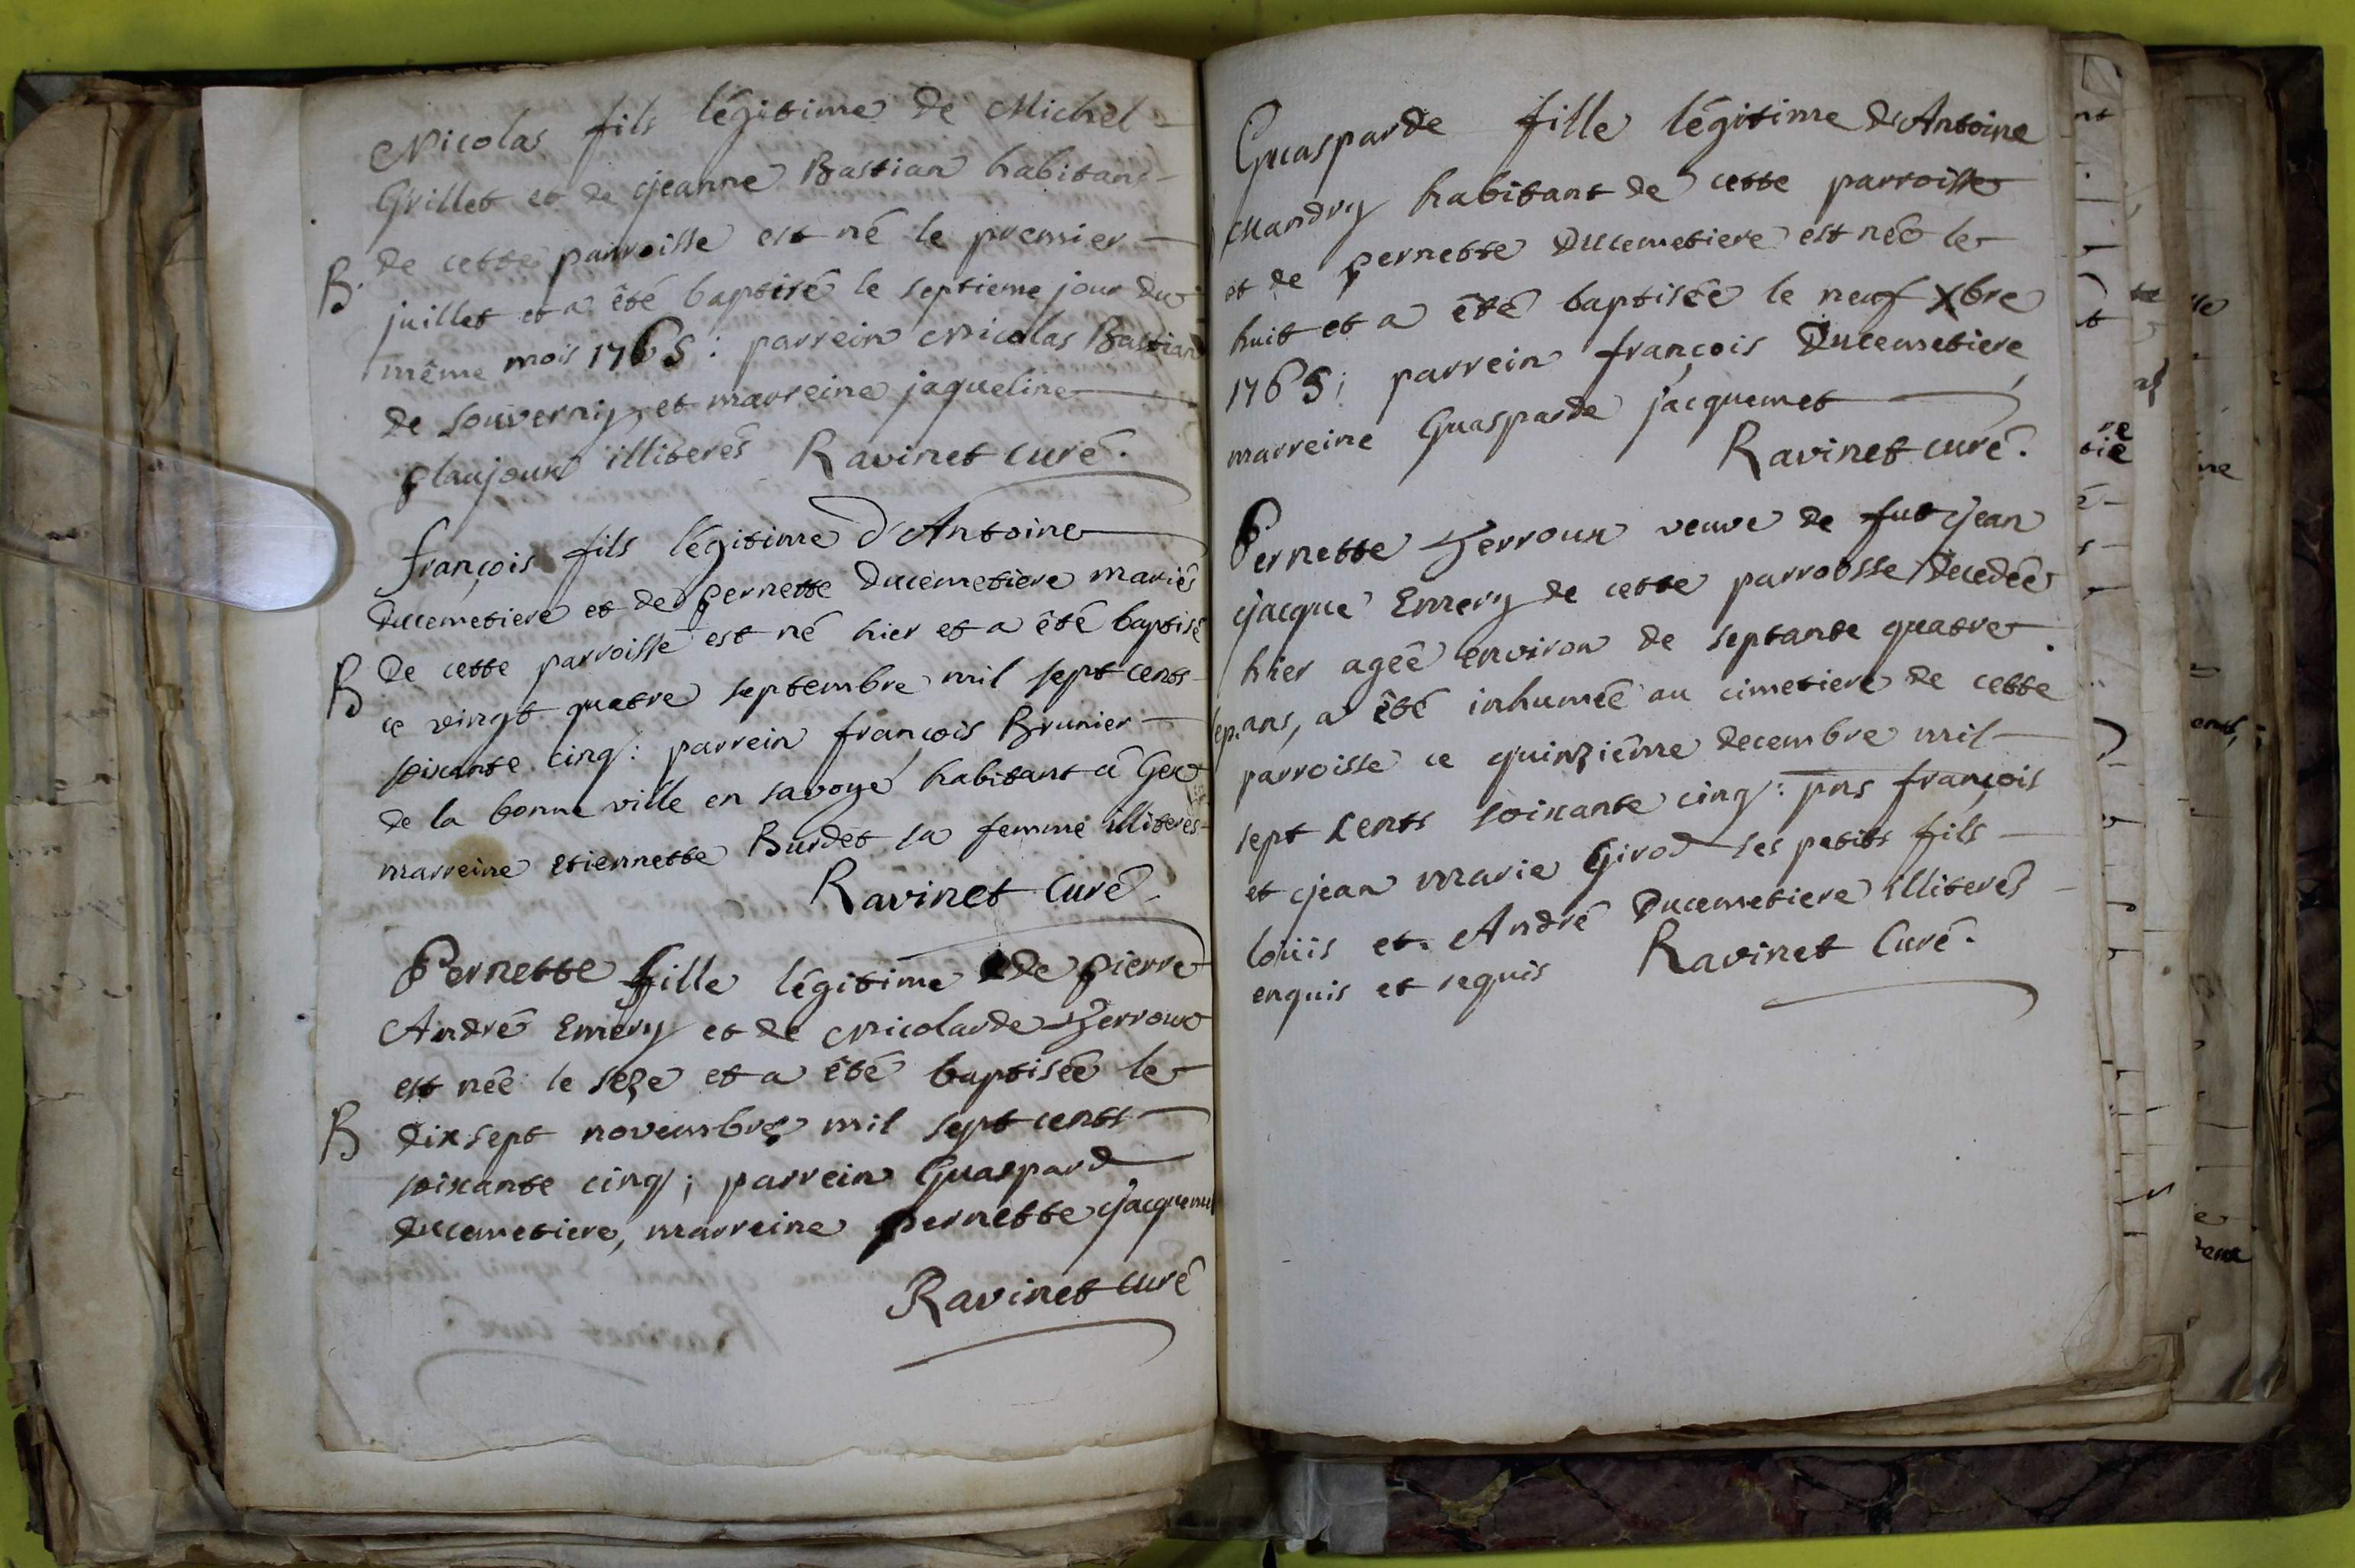 Nicolas fils légitime de Michel
Grillet et de jeanne Bastian habitans
de cette parroisse est né le premier
B. juillet et a été baptisé le septieme jour du
même mois 1765 : parrein Nicolas Bastian
de souverny, et marreine jaqueline
plaujoux illiterés Ravinet curé.
françois fils légitime d'Antoine
Ducemetiere et de pernette Ducemetiere mariés
B De cette parroisse est né hier et a été baptisé
ce vingt quatre septembre mil sept cents
soixante cinq : parrein françois Brunier
de la bonne ville en savoye habitant à Gex
marreine etiennette Burdet sa femme illiterés
Ravinet Curé
Pernette fille légitime de pierre
André Emery et de Nicolarde Zerroux
est née le seze et a été baptisée le
B dix sept novembre mil sept cents
soixante cinq ; parrein Guaspard
Ducemetiere, marreine pernette jacquemet
Ravinet curé
Guasparde fille légitime d'Antoine
Mandry habitant de cette parroisse
et de pernette Ducemetiere est née le
huit et a été baptisée le neuf Xbre
1765 ; parrein françois Ducemetiere
marreine Guasparde jacquemet
Ravinet curé.
Pernette Zerroux veuve de fut jean
jacque Emery de cette parroisse Decedée
hier agée environ de septante quatre
sep. ans, a été inhumée au cimetiere de cette
parroisse ce quinziême decembre mil
sept cents soixante cinq : pns françois
et jean marie Girod ses petits fils
loüis et André Ducemetiere illiterés
enquis et requis Ravinet Curé.